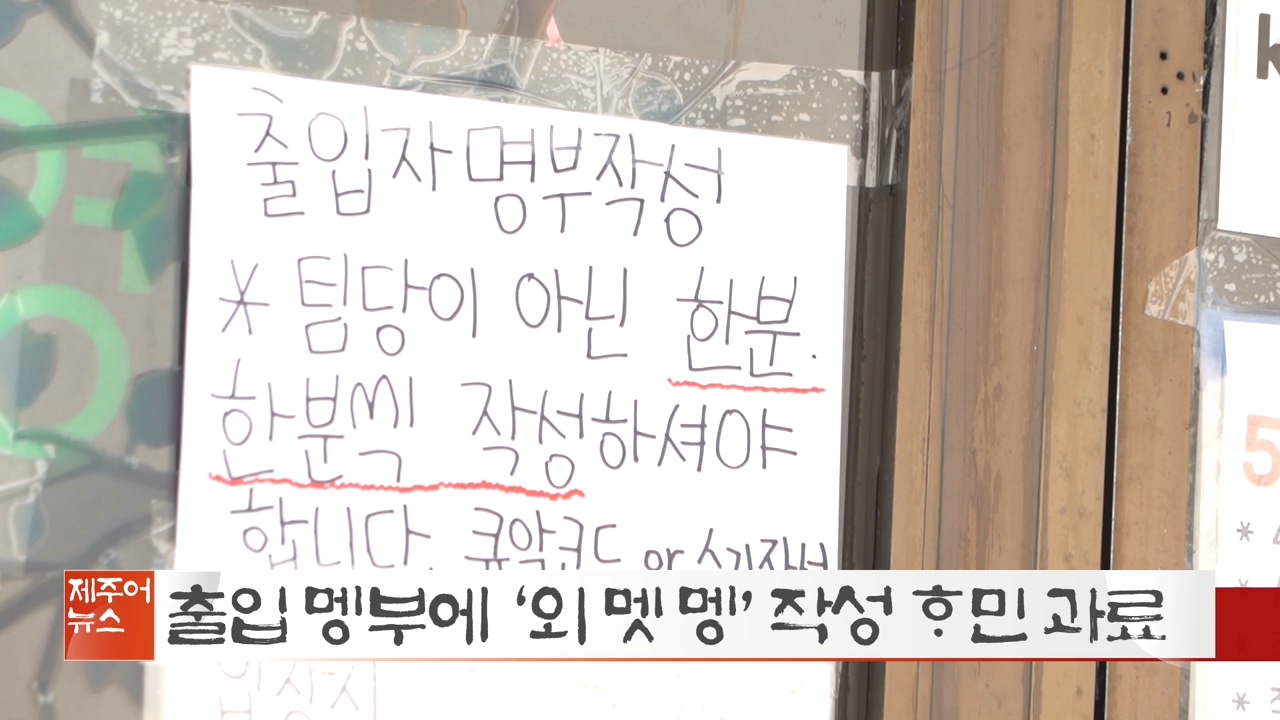 출입자 명부작성
* 팀당이 아닌 한분.
한분씩 작성하셔야
합니다. 큐알코드 or 수기작성
제주어
뉴스
출입 멩부에 ‘외 멧 멩’ 작성 ᄒᆞ민 과료
k
5
*
*
*